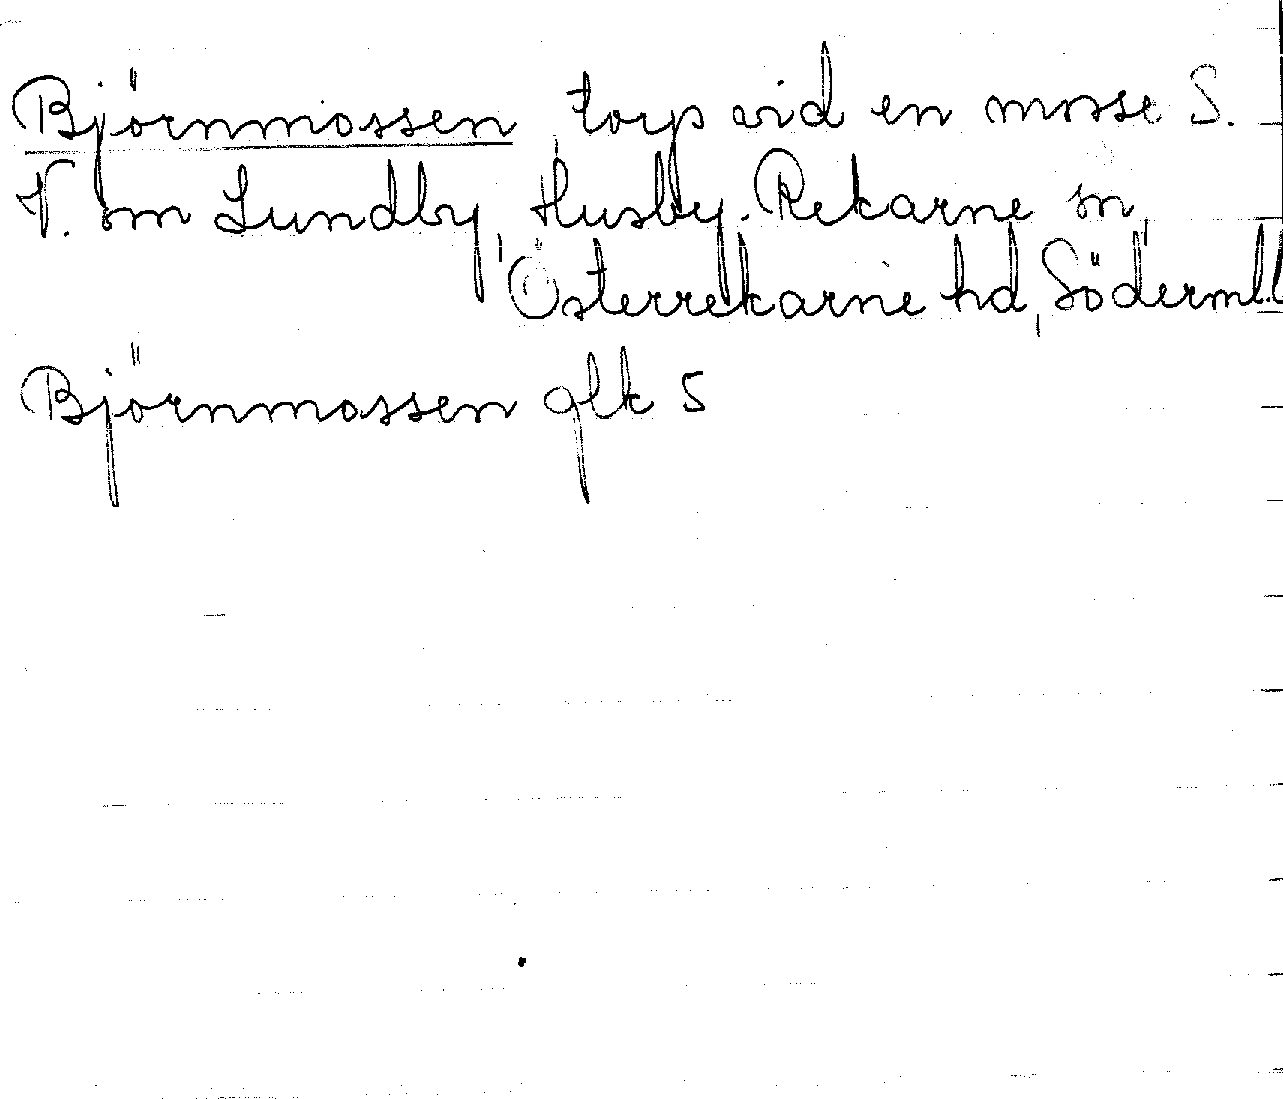 Björnmossen, torp vid en mosse S.
V. om Lundby, Husby-Rekarne sn,
Österrekarne hd, Söderml.
Björnmossen glk 5